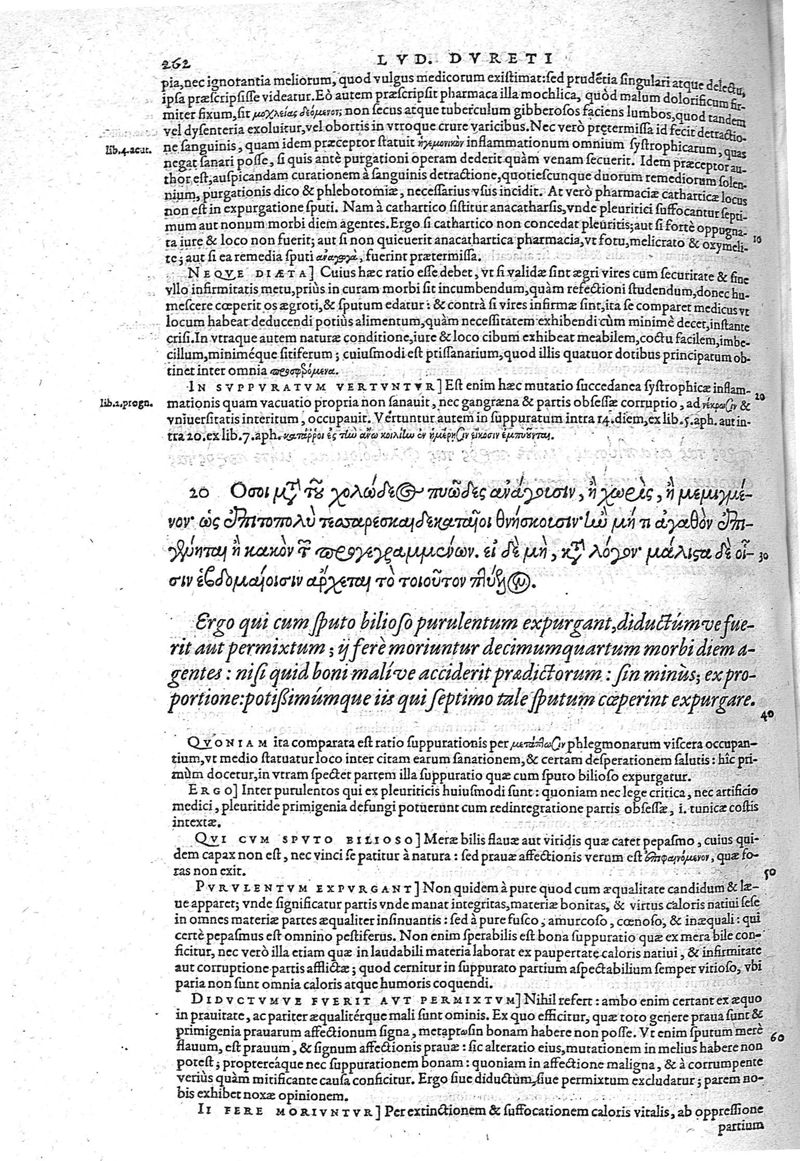 262
LVD. DVRETI
pia, nec ignorantia meliorum, quod vulgus medicorum existimat: sed prudẽtia singulari atque delectu,
ipsa præscripsisse videatur. Eò autem præscripsit pharmaca illa mochlica, quòd malum dolorificum fir-
miter fixum, sit μοχλείας δεόμενον: non secus atque tuberculum gibberosos faciens lumbos, quod tandem
vel dysenteria exoluitur, vel obortis in vtroque crure varicibus. Nec verò prętermissa id fecit detractio-
lib. 4. acut.
ne sanguinis, quam idem præceptor statuit ἡγεμονικὸν inflammationum omnium systrophicarum, quas
negat sanari posse, si quis antè purgationi operam dederit quàm venam secuerit. Idem præceptor au-
thor est, auspicandam curationem à sanguinis detractione, quotiescunque duorum remediorum solen-
nium, purgationis dico & phlebotomiæ, necessarius vsus incidit. At verò pharmaciæ catharticæ locus
non est in expurgatione sputi. Nam à cathartico sistitur anacatharsis, vnde pleuritici suffocantur septi-
mum aut nonum morbi diem agentes. Ergo si cathartico non concedat pleuritis; aut si fortè oppugna-
10
ta iure & loco non fuerit; aut si non quieuerit anacathartica pharmacia, vt fotu, melicrato & oxymeli-
te; aut si ea remedia sputi fuerint prætermissa.
NEQVE DIÆTA] Cuius hæc ratio esse debet, vt si validæ sint ægri vires cum securitate & sine
vllo infirmitatis metu, priùs in curam morbi sit incumbendum, quàm refectioni studendum, donec hu-
mescere cœperit os ægroti, & sputum edatur: & contrà si vires infirmæ sint, ita se comparet medicus vt
locum habeat deducendi potiùs alimentum, quàm necessitatem exhibendi cùm minimè decet, instante
crisi. In vtraque autem naturæ conditione, iure & loco cibum exhibet meabilem, coctu facilem, imbe-
cillum, miniméque sitiferum; cuiusmodi est ptissanarium, quod illis quatuor dotibus principatum ob-
tinet inter omnia προσφερόμενα.
IN SVPPVRATVM VERTVNTVR] Est enim hæc mutatio succedanea systrophicæ inflam-
20
lib. 2. progn.
mationis quam vacuatio propria non sanauit, nec gangræna & partis obsessæ corruptio, ad νέκρωσιν &
vniuersitatis interitum, occupauit. Vertuntur autem in suppuratum intra 14. diem, ex lib. 5. aph. aut in-
tra 20. ex lib. 7. aph. κατάῤῥοι ἐς τὴν ἄνω κοιλίην ἐν ἡμέρῃσιν εἴκοσιν ἐμπυοῦνται.
20 Οσοι μετὰ τοῦ χολώδεος πυῶδες ἀνάγουσιν, ἢ χωρὶς, ἢ μεμιγμέ-
νον· ὡς ἐπιτοπολὺ τεσσαρεσκαιδεκαταῖοι θνήσκουσιν· ἢν μή τι ἀγαθὸν ἐπι-
γένηται ἢ κακὸν τῶν προγεγραμμένων. εἰ δὲ μὴ, κατὰ λόγον· μάλιστα δὲ οἷ-
30
σιν ἑβδομαίοισιν ἄρχεται τὸ τοιοῦτον πτύελον.
Ergo qui cum sputo bilioso purulentum expurgant, diductúmve fue-
rit aut permixtum; ij ferè moriuntur decimumquartum morbi diem a-
gentes: nisi quid boni malíve acciderit prædictorum: sin minùs; ex pro-
portione: potißimúmque iis qui septimo tale sputum cœperint expurgare.
40
QVONIAM ita comparata est ratio suppurationis per phlegmonarum viscera occupan-
tium, vt medio statuatur loco inter citam earum sanationem, & certam desperationem salutis: hîc pri-
mùm docetur, in vtram spectet partem illa suppuratio quæ cum sputo bilioso expurgatur.
ERGO] Inter purulentos qui ex pleuriticis huiusmodi sunt: quoniam nec lege critica, nec artificio
medici, pleuritide primigenia defungi potuerunt cum redintegratione partis obsessæ, i. tunicæ costis
intextæ.
QVI CVM SPVTO BILIOSO] Meræ bilis flauæ aut viridis quæ caret pepasmo, cuius qui-
dem capax non est, nec vinci se patitur à natura: sed prauæ affectionis verum est ἐπιφαινόμενον, quæ fo-
ras non exit.
50
PVRVLENTVM EXPVRGANT] Non quidem à pure quod cum æqualitate candidum & læ-
ue apparet; vnde significatur partis vnde manat integritas, materiæ bonitas, & virtus caloris natiui sese
in omnes materiæ partes æqualiter insinuantis: sed à pure fusco, amurcoso, cœnoso, & inæquali: qui
certè pepasmus est omnino pestiferus. Non enim sperabilis est bona suppuratio quæ ex mera bile con-
ficitur, nec verò illa etiam quæ in laudabili materia laborat ex paupertate caloris natiui, & infirmitate
aut corruptione partis afflictæ; quod cernitur in suppurato partium aspectabilium semper vitioso, vbi
paria non sunt omnia caloris atque humoris coquendi.
DIDVCTVMVE FVERIT AVT PERMIXTVM] Nihil refert: ambo enim certant ex æquo
in prauitate, ac pariter æqualitérque mali sunt ominis. Ex quo efficitur, quæ toto genere praua sunt &
primigenia prauarum affectionum signa, metaptosin bonam habere non posse. Vt enim sputum merè
60
flauum, est prauum, & signum affectionis prauæ: sic alteratio eius, mutationem in melius habere non
potest; proptereáque nec suppurationem bonam: quoniam in affectione maligna, & à corrumpente
verius quàm mitificante causa conficitur. Ergo siue diductum, siue permixtum excludatur; parem no-
bis exhibet noxæ opinionem.
II FERE MORIVNTVR] Per extinctionem & suffocationem caloris vitalis, ab oppressione
partium